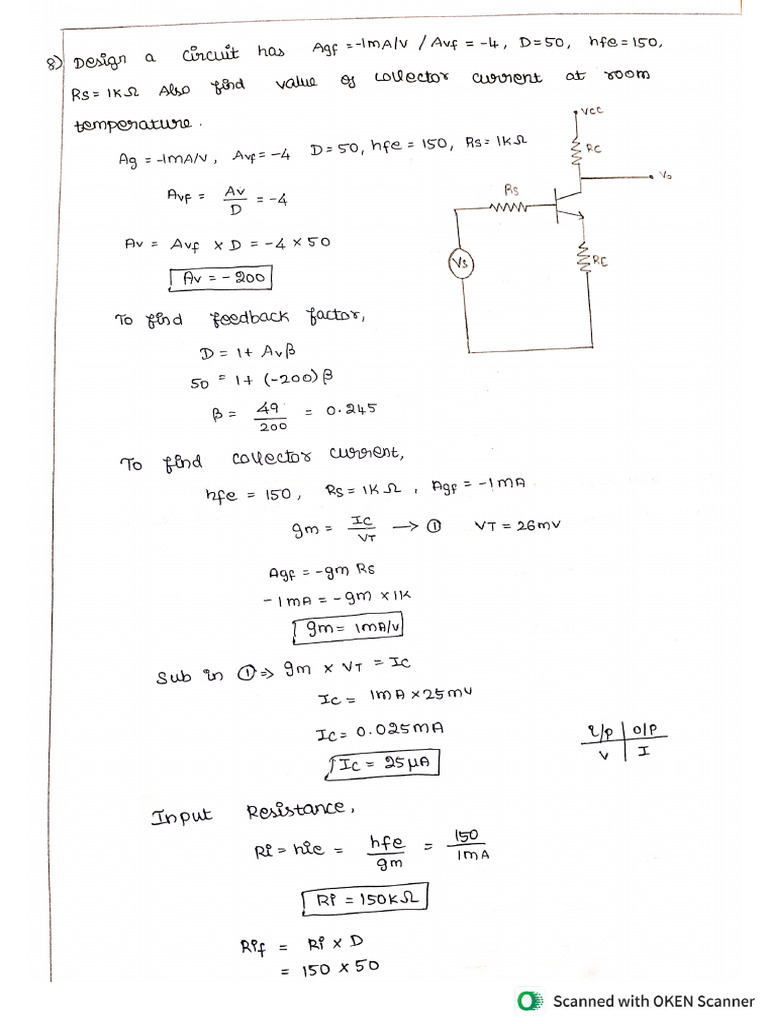 8) Design a circuit has Agf = -1mA/V / Avf = -4, D=50, hfe=150,
Rs = 1KΩ Also find value of collector current at room
temperature.
Ag = -1mA/V, Avf = -4 D = 50, hfe = 150, Rs = 1KΩ
VCC
RC
Vo
Rs
Vs
RE
Avf = Av/D = -4
Av = Avf × D = -4 × 50
Av = -200
To find feedback factor,
D = 1 + Avβ
50 = 1 + (-200) β
β = 49/200 = 0.245
To find collector current,
hfe = 150, Rs = 1KΩ, Agf = -1mA
gm = IC/VT → ① VT = 26mV
Agf = -gm Rs
-1mA = -gm × 1K
gm = 1mA/V
Sub in ① ⇒ gm × VT = IC
IC = 1mA × 25mV
IC = 0.025mA
IC = 25μA
I/P | O/P
V | I
Input Resistance,
Ri = hie = hfe/gm = 150/1mA
Ri = 150KΩ
Rif = Ri × D
= 150 × 50
Scanned with OKEN Scanner